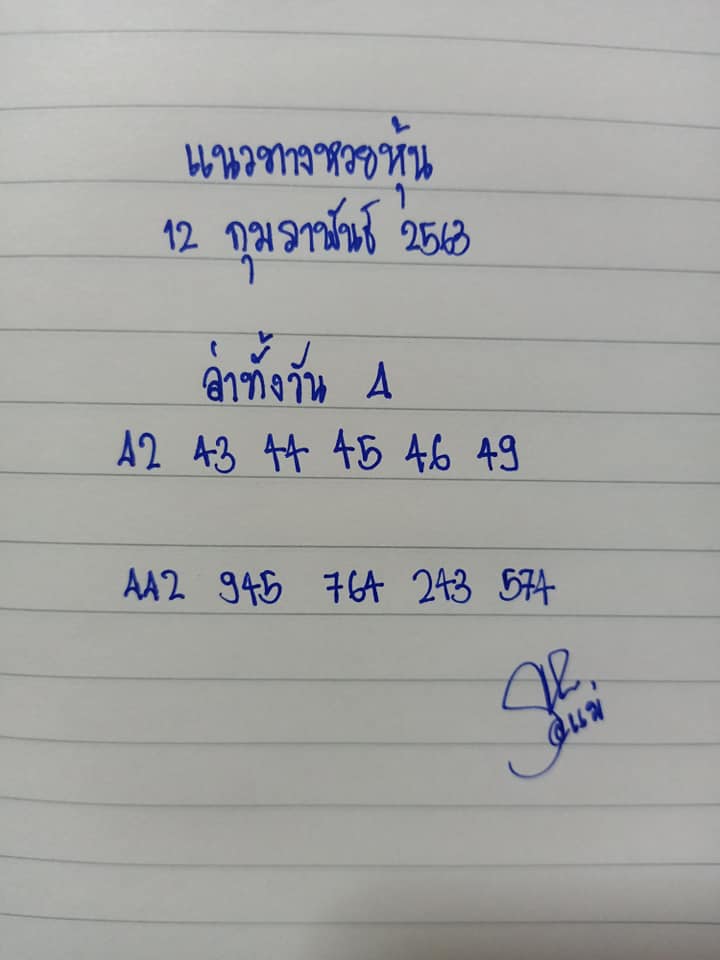 แนวทางหวยหุ้น
12 กุมภาพันธ์ 2563
ล่าทั้งวัน 4
42 43 44 45 46 49
442 945 764 243 574
@แม่